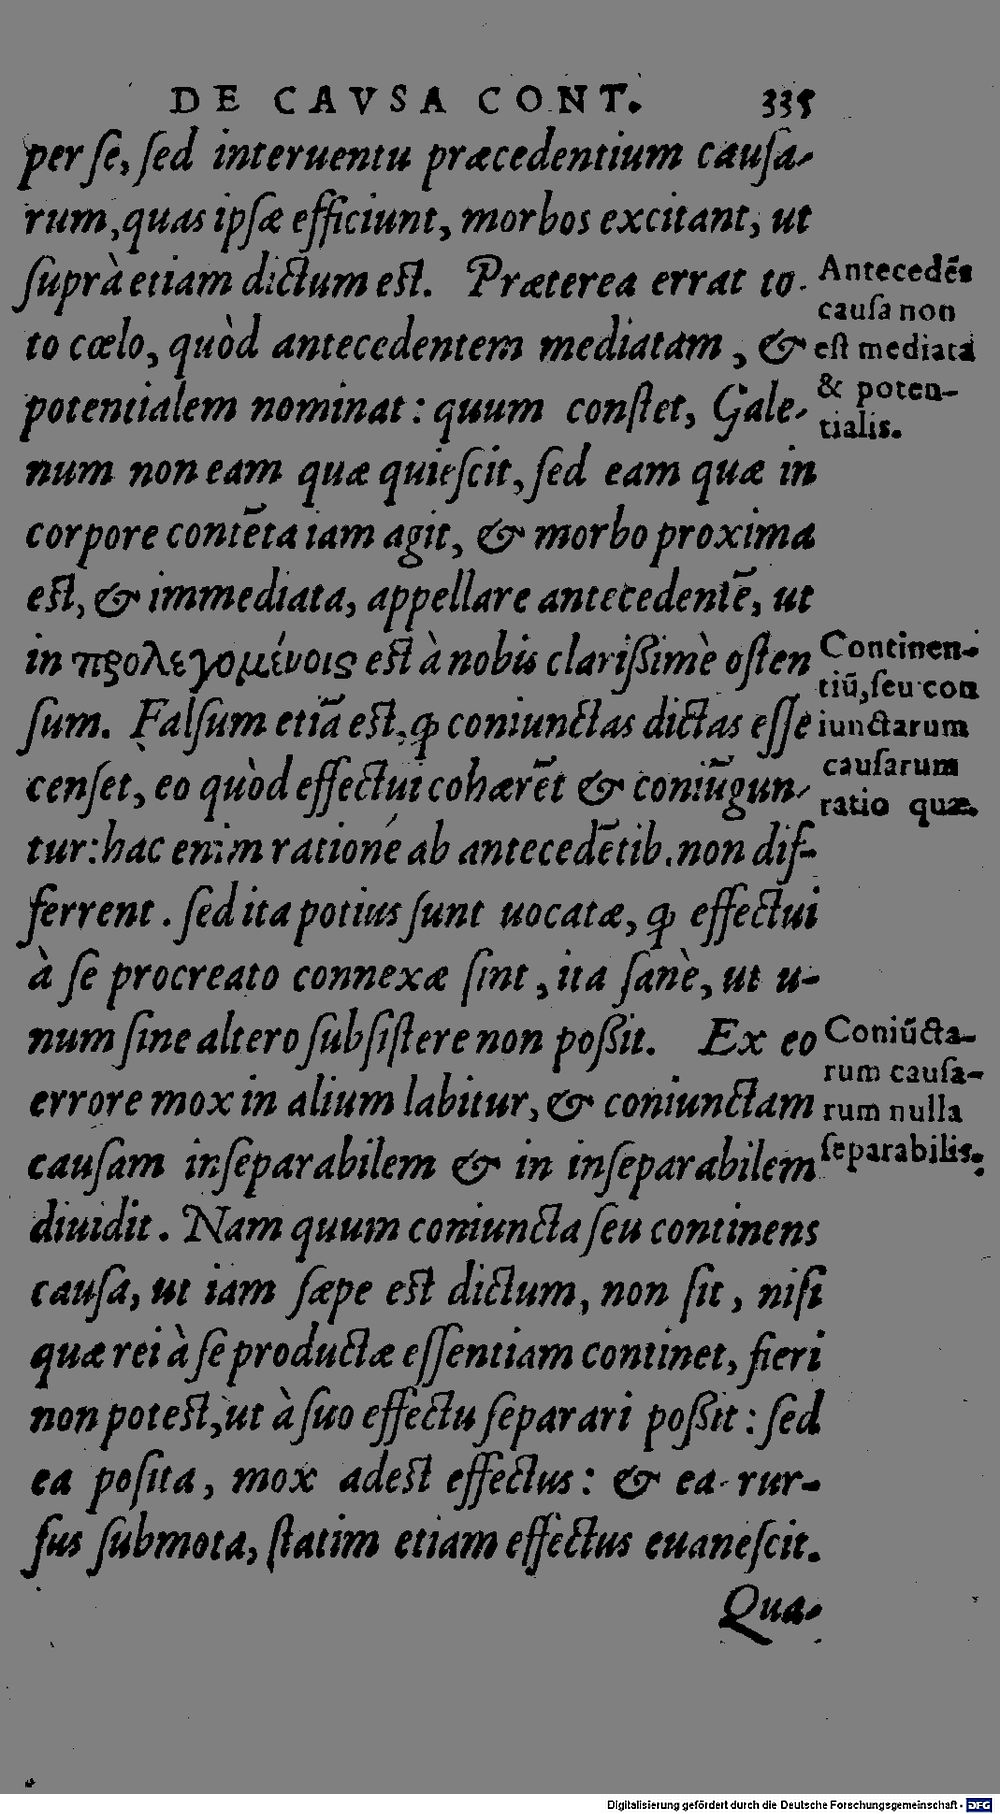 DE CAVSA CONT. 335
per se, sed interuentu præcedentium causa-
rum, quas ipsæ efficiunt, morbos excitant, ut
suprà etiam dictum est. Præterea errat to-
to cœlo, quòd antecedentem mediatam, &
potentialem nominat: quum constet, Gale-
num non eam quæ quiescit, sed eam quæ in
corpore contẽta iam agit, & morbo proxima
est, & immediata, appellare antecedentẽ, ut
in προλεγομένοις est à nobis clarißimè osten
sum. Falsum etiã est, ꝙ coniunctas dictas esse
censet, eo quòd effectui cohærẽt & coniũgun-
tur: hac enim ratione ab antecedẽtib. non dif-
ferrent. sed ita potius sunt uocatæ, ꝙ effectui
à se procreato connexæ sint, ita sanè, ut u-
num sine altero subsistere non poßit. Ex eo
errore mox in alium labitur, & coniunctam
causam inseparabilem & in inseparabilem
diuidit. Nam quum coniuncta seu continens
causa, ut iam sæpe est dictum, non sit, nisi
quæ rei à se productæ essentiam continet, fieri
non potest, ut à suo effectu separari poßit: sed
ea posita, mox adest effectus: & ea rur-
sus submota, statim etiam effectus euanescit.
Qua-
Antecedẽs
causa non
est mediata
& poten-
tialis.
Continen-
tiũ, seu con
iunctarum
causarum
ratio quæ.
Coniũcta-
rum causa-
rum nulla
separabilis.
Digitalisierung gefördert durch die Deutsche Forschungsgemeinschaft - DFG